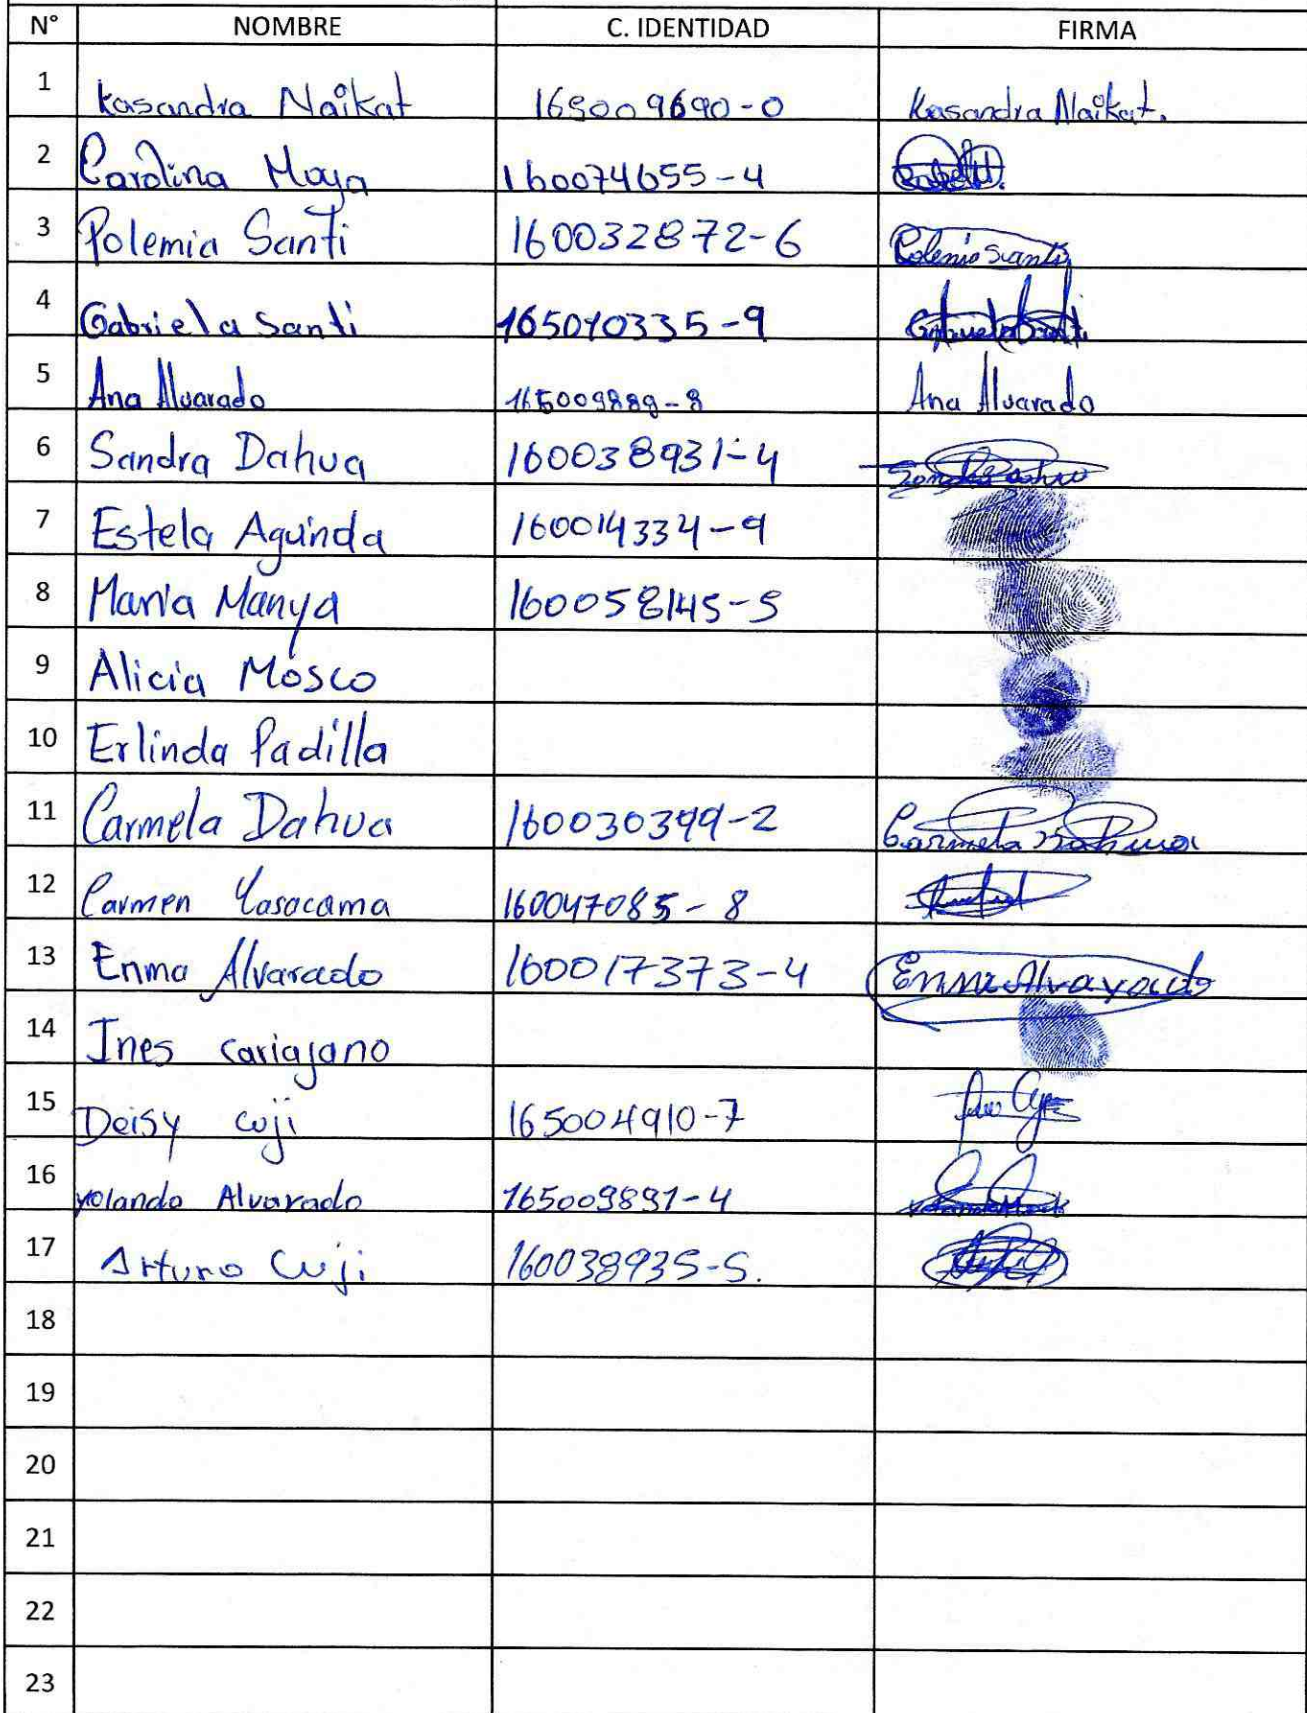 N° NOMBRE C. IDENTIDAD FIRMA
1 Kasandra Naikat 165009690-0 Kasandra Naikat.
2 Carolina Moya 160074655-4
3 Polemia Santi 160032872-6 Polemia Santi
4 Gabriela Santi 165010335-9
5 Ana Alvarado 165009889-8 Ana Alvarado
6 Sandra Dahua 160038931-4
7 Estela Aguinda 160014334-9
8 Maria Manya 160058145-5
9 Alicia Mosco
10 Erlinda Padilla
11 Carmela Dahua 160030399-2 Carmela Dahua
12 Carmen Yasacama 160047085-8
13 Enma Alvarado 160017373-4 Enma Alvarado
14 Ines Cariajano
15 Deisy Cuji 165004910-7
16 Yolanda Alvarado 165009891-4
17 Arturo Cuji 160038935-5.
18
19
20
21
22
23